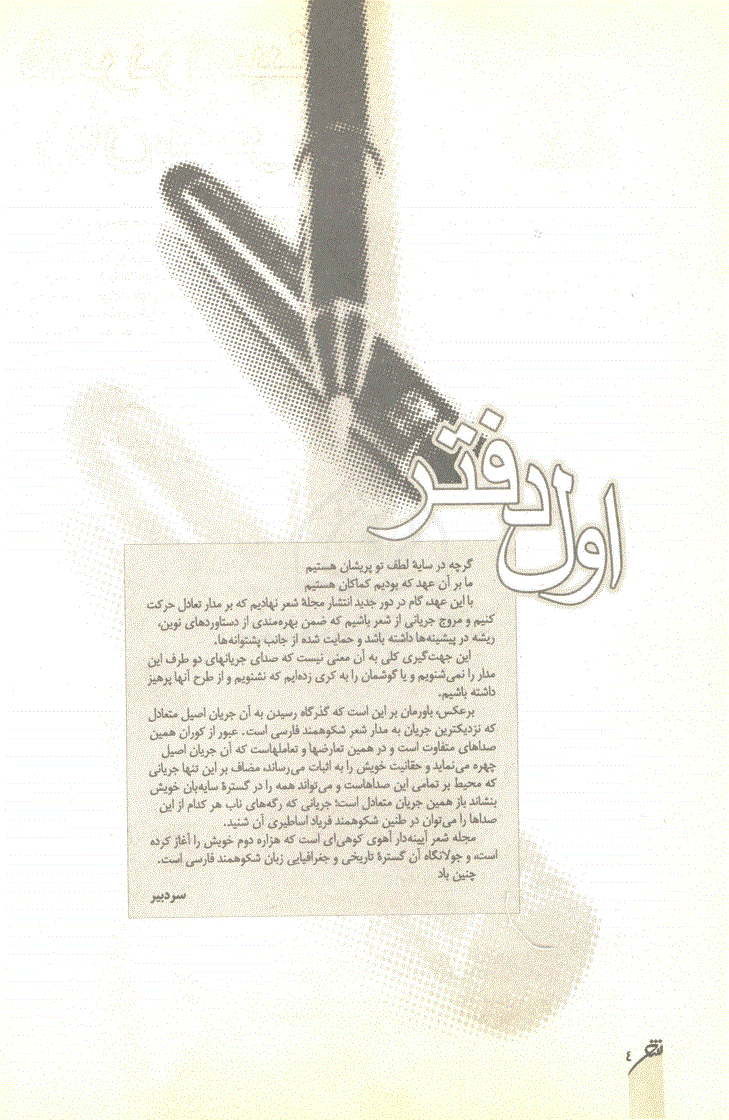 اول دفتر
گرچه در سایهٔ لطف تو پریشان هستیم
ما بر آن عهد که بودیم کماکان هستیم
با این عهد، گام در دور جدید انتشار مجلهٔ شعر نهادیم که بر مدار تعادل حرکت
کنیم و مروج جریانی از شعر باشیم که ضمن بهره‌مندی از دستاوردهای نوین،
ریشه در پیشینه‌ها داشته باشد و حمایت شده از جانب پشتوانه‌ها.
این جهت‌گیری کلی به آن معنی نیست که صدای جریانهای دو طرف این
مدار را نمی‌شنویم و یا گوشمان را به کری زده‌ایم که نشنویم و از طرح آنها پرهیز
داشته باشیم.
برعکس، باورمان بر این است که گذرگاه رسیدن به آن جریان اصیل متعادل
که نزدیکترین جریان به مدار شعر شکوهمند فارسی است. عبور از کوران همین
صداهای متفاوت است و در همین تعارضها و تعاملهاست که آن جریان اصیل
چهره می‌نماید و حقانیت خویش را به اثبات می‌رساند، مضاف بر این تنها جریانی
که محیط بر تمامی این صداهاست و می‌تواند همه را در گسترهٔ سایه‌بان خویش
بنشاند باز همین جریان متعادل است؛ جریانی که رگه‌های ناب هر کدام از این
صداها را می‌توان در طنین شکوهمند فریاد اساطیری آن شنید.
مجله شعر آیینه‌دار آهوی کوهی‌ای است که هزاره دوم خویش را آغاز کرده
است، و جولانگاه آن گسترهٔ تاریخی و جغرافیایی زبان شکوهمند فارسی است.
چنین باد
سردبیر
شعر
٤